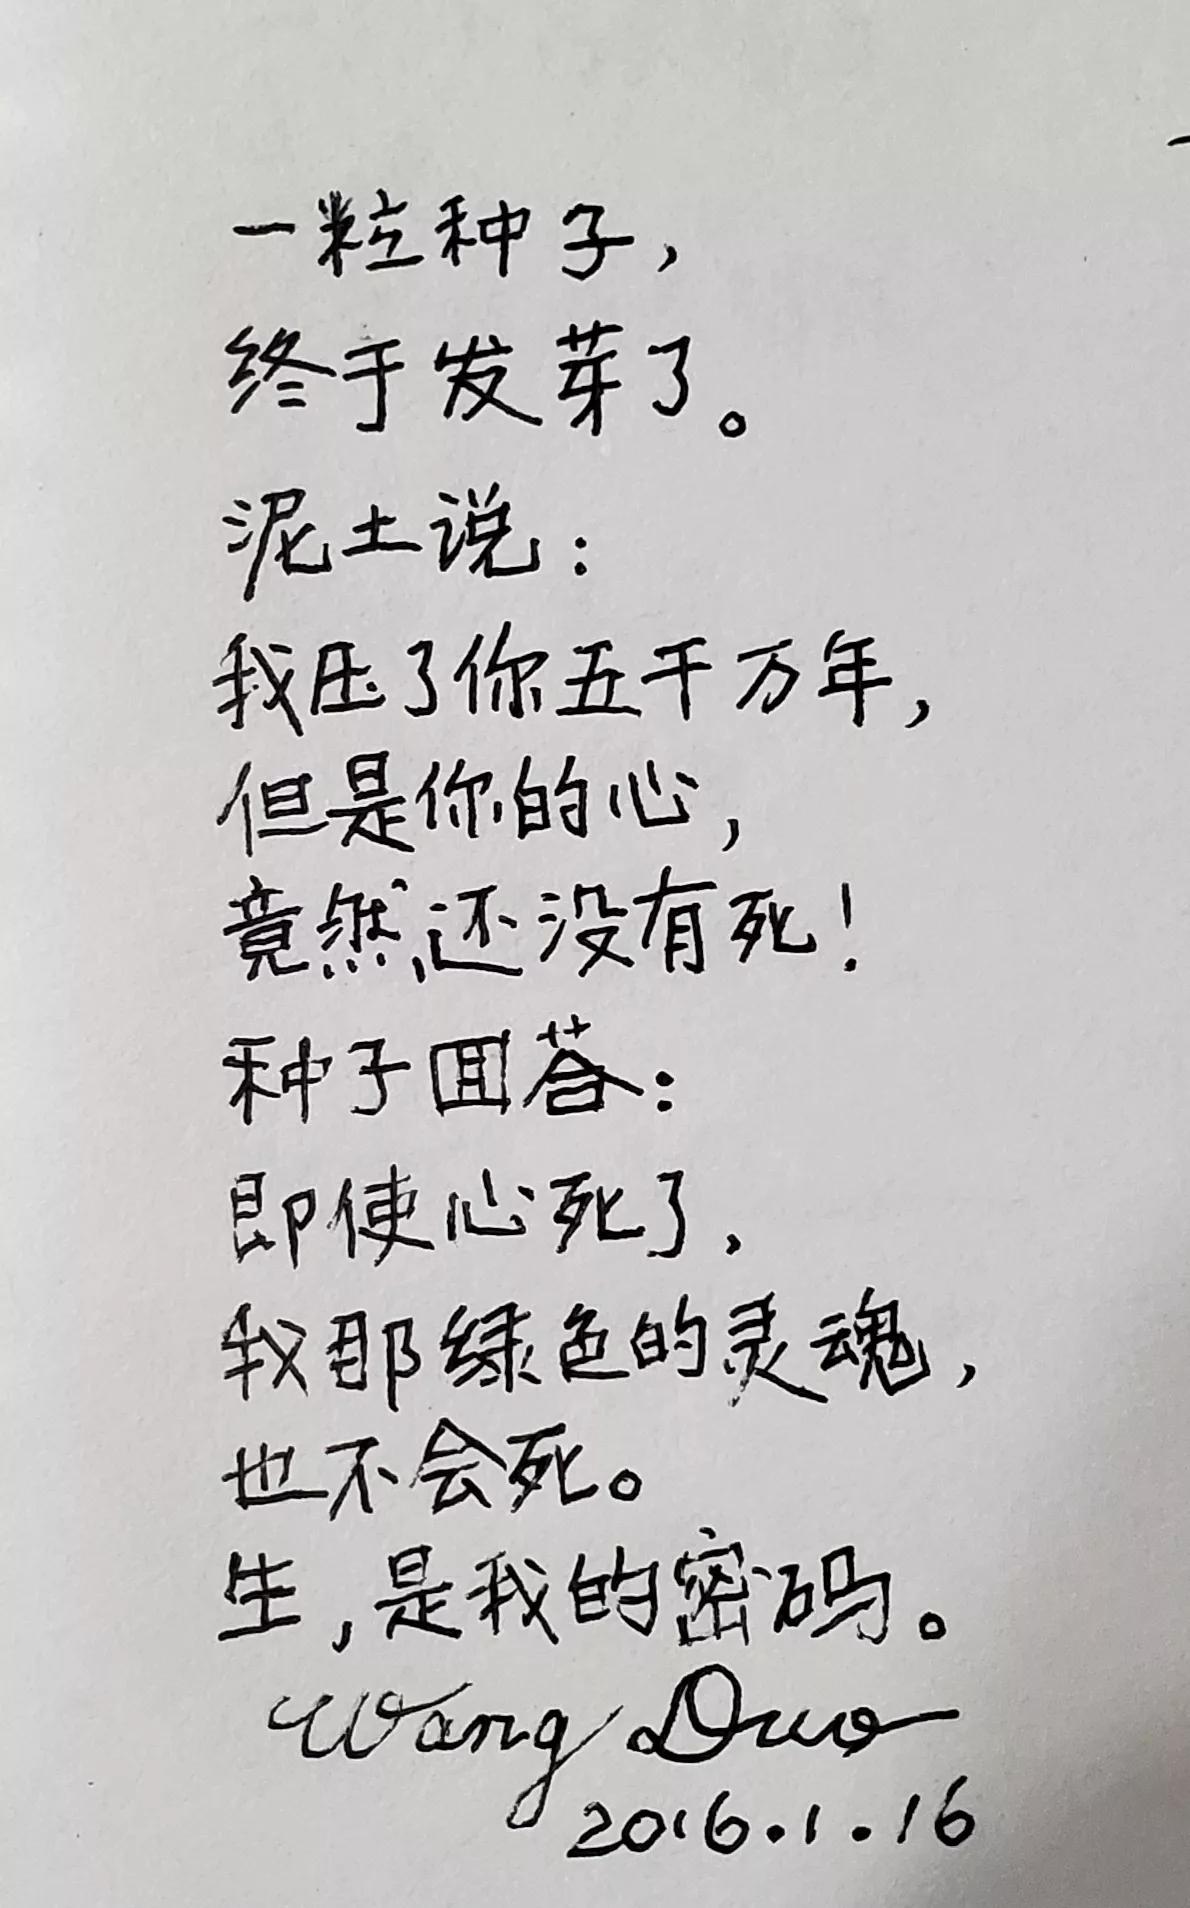 一粒种子，
终于发芽了。
泥土说：
我压了你五千万年，
但是你的心，
竟然还没有死！
种子回答：
即使心死了，
我那绿色的灵魂，
也不会死。
生，是我的密码。
Wang Duo
2016.1.16